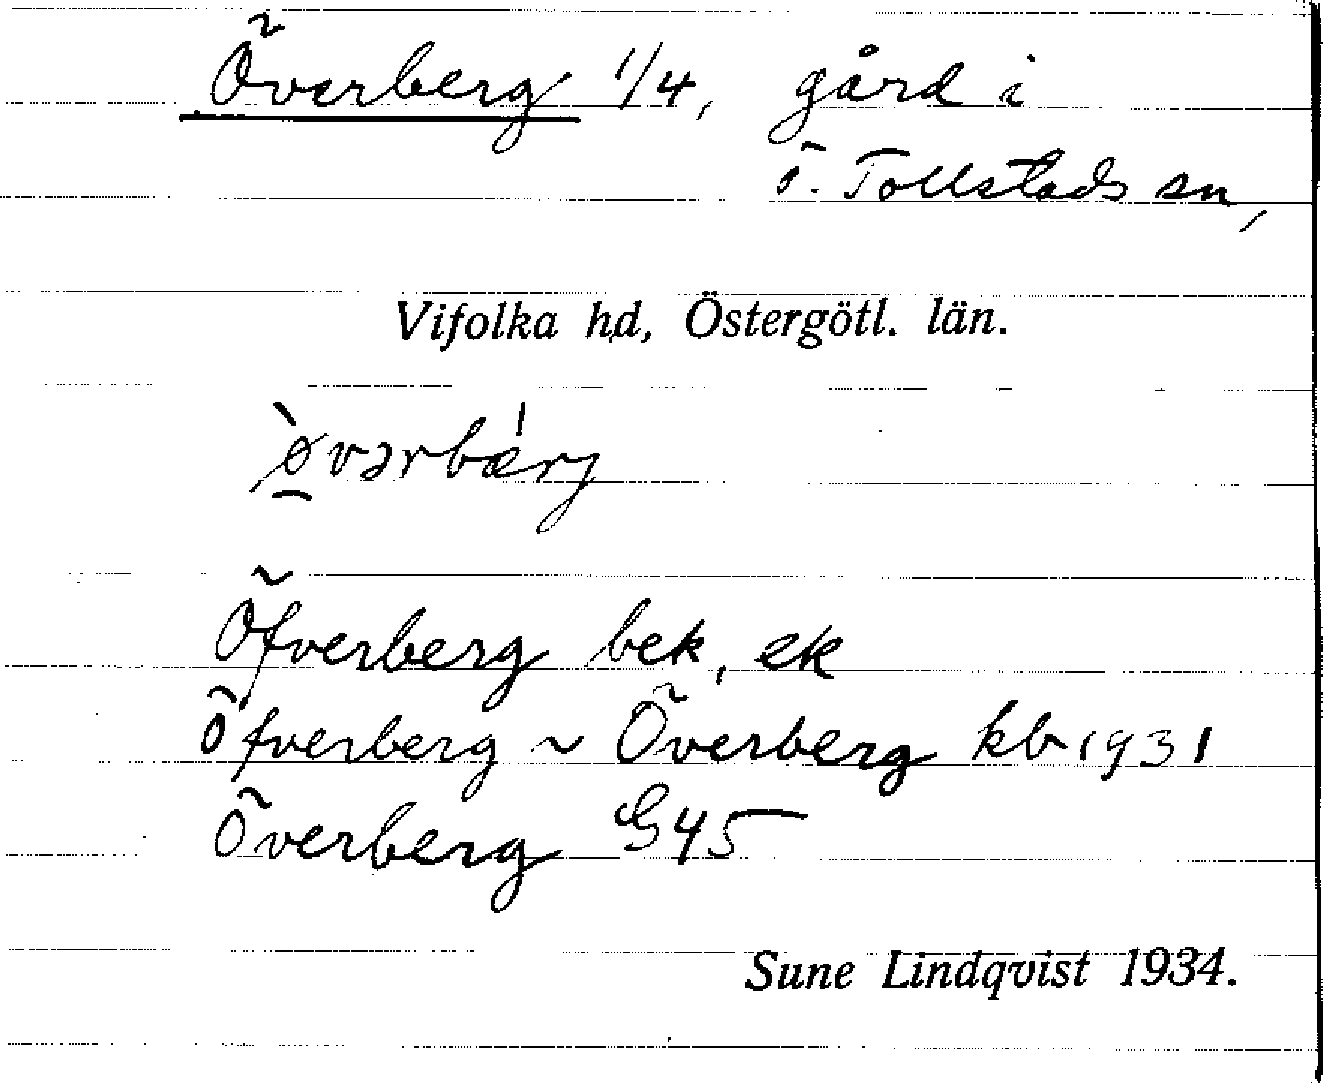 Överberg 1/4, gård i
Ö. Tollstads sn,
Vifolka hd, Östergötl. län.
ø̀vərbæ̍rj
Öfverberg bek, ek
Öfverberg ~ Överberg kb 1931
Överberg G45
Sune Lindqvist 1934.